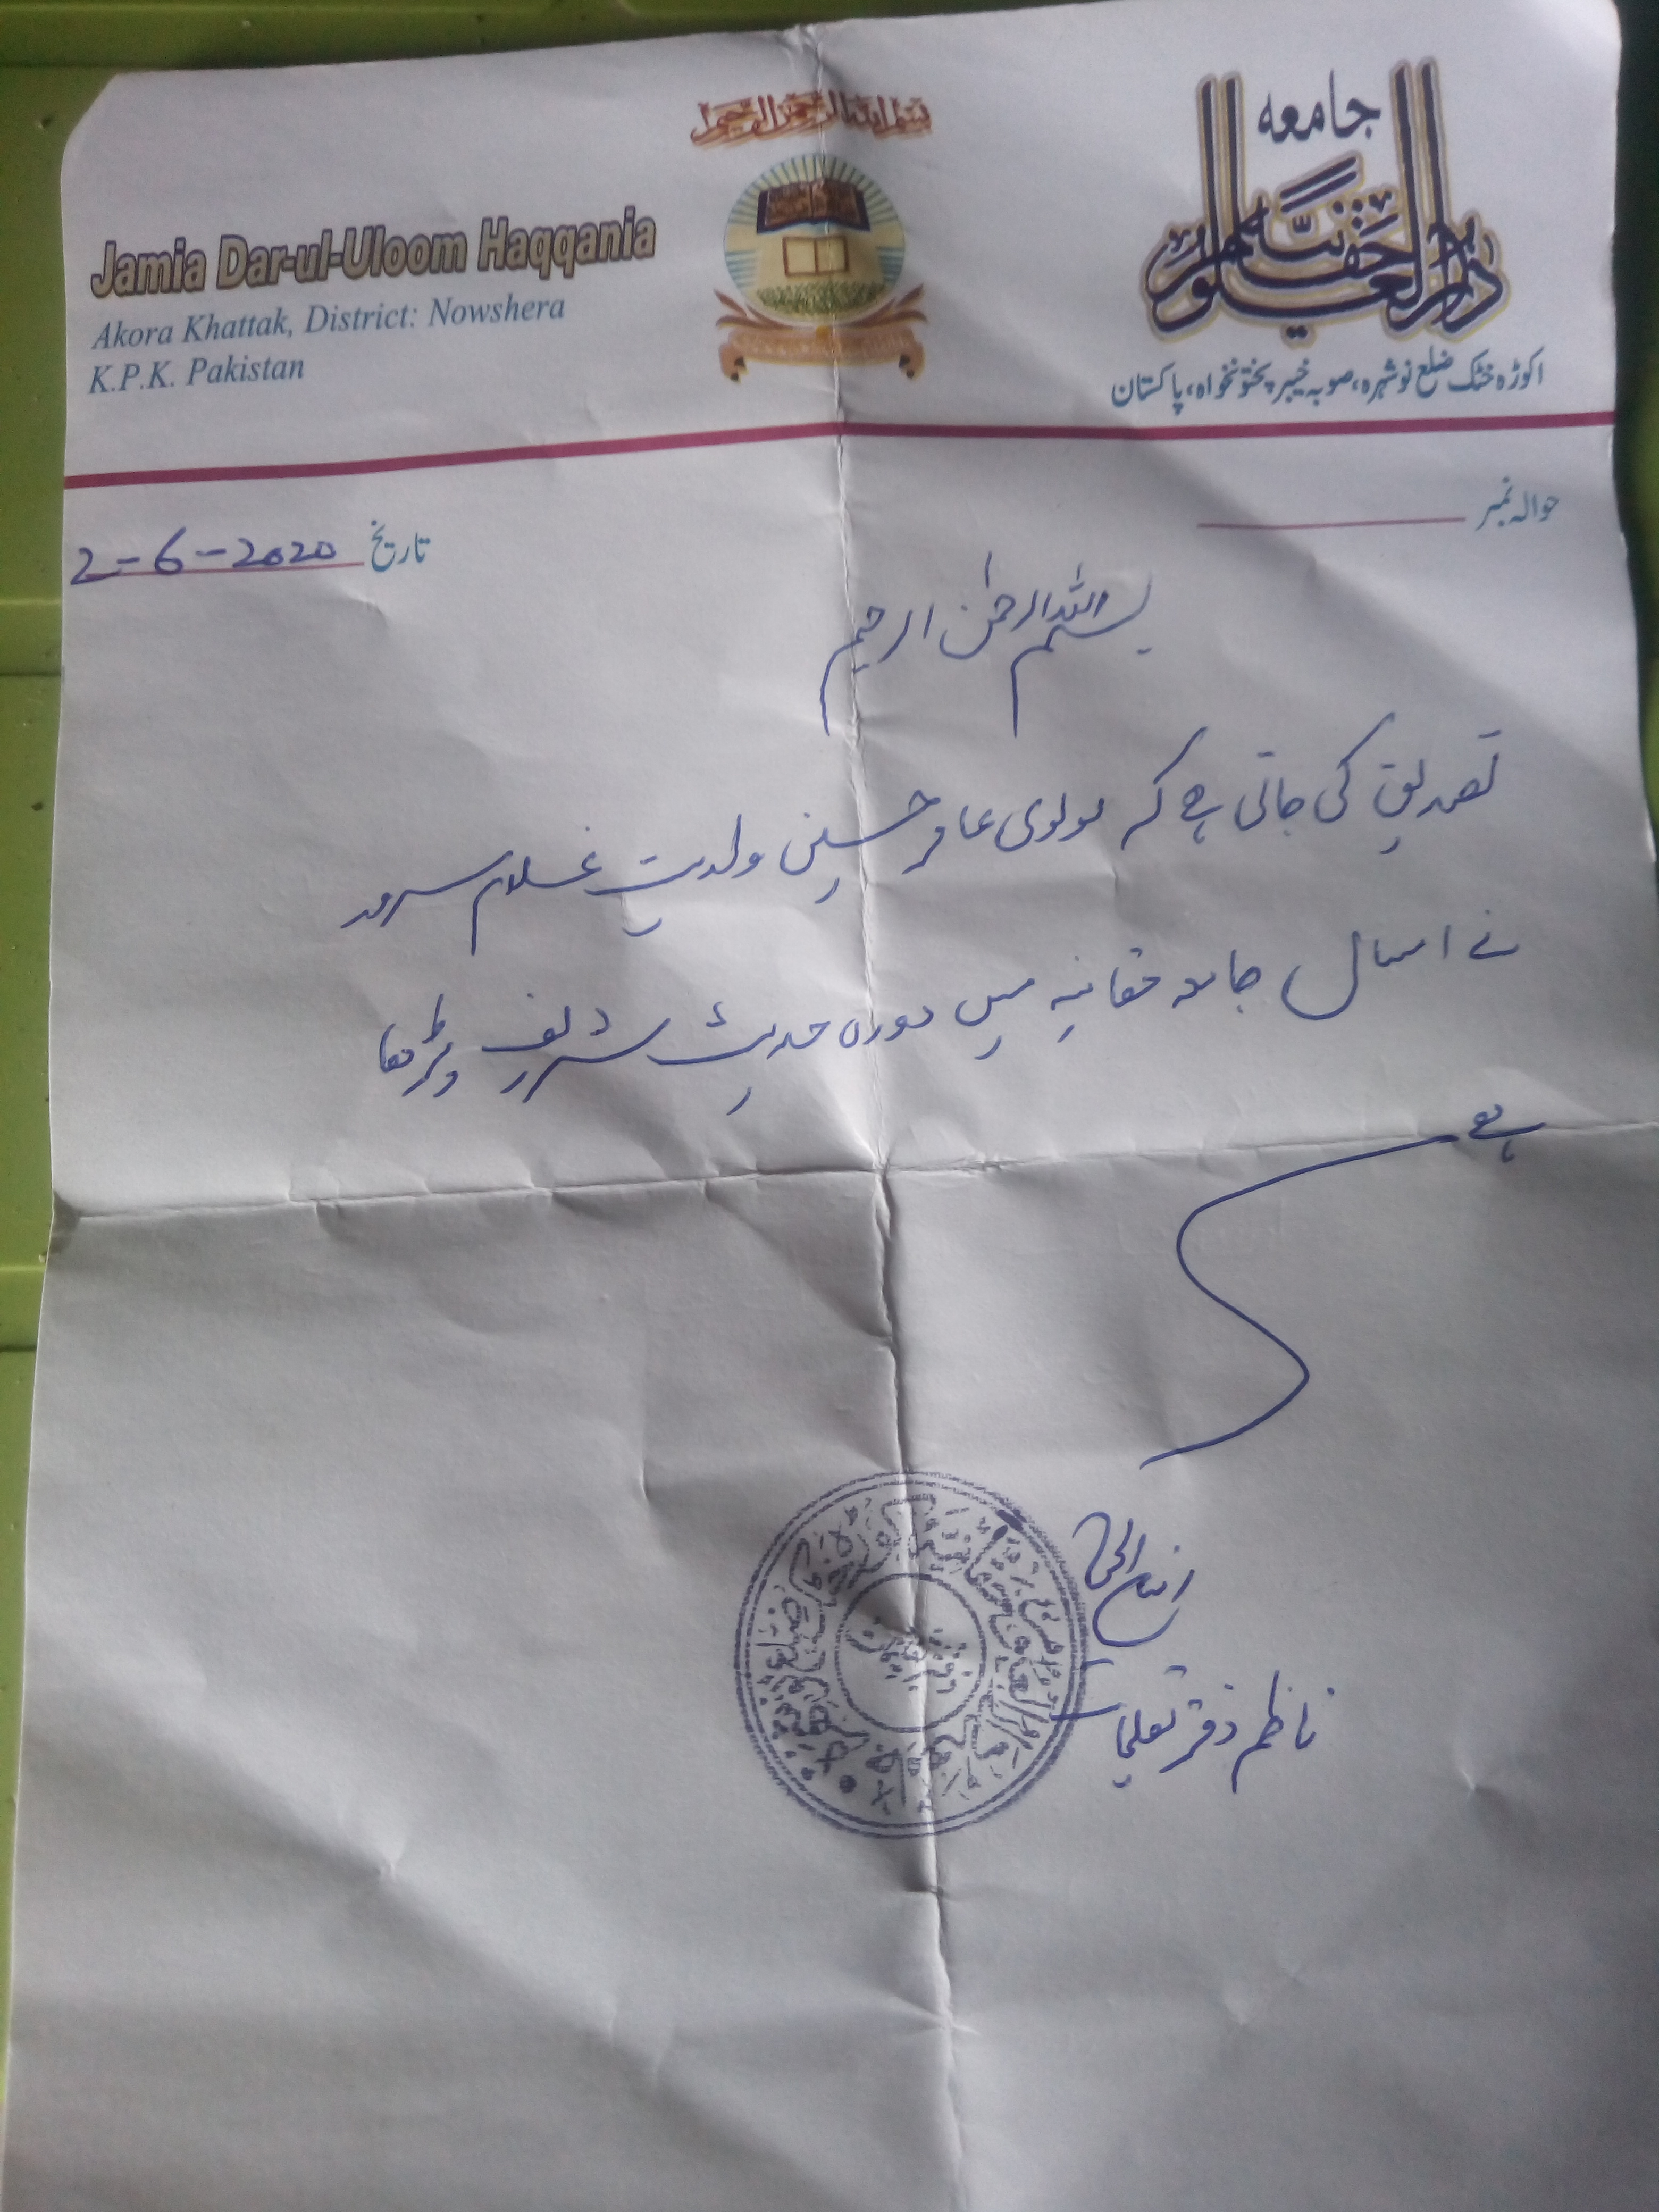 بسم اللہ الرحمن الرحیم
جامعہ
دارالعلوم حقانیہ
Jamia Dar-ul-Uloom Haqqania
Akora Khattak, District: Nowshera
K.P.K. Pakistan
اکوڑہ خٹک ضلع نوشہرہ، صوبہ خیبر پختونخواہ، پاکستان
حوالہ نمبر
تاریخ 2-6-2020
بسم اللہ الرحمٰن الرحیم
تصدیق کی جاتی ہے کہ مولوی عامر حسین ولدیت غلام سرور
نے امسال جامعہ حقانیہ میں دورہ حدیث شریف پڑھا
ہے
ناظم دفتر تعلیمات
دفتر تعلیمات